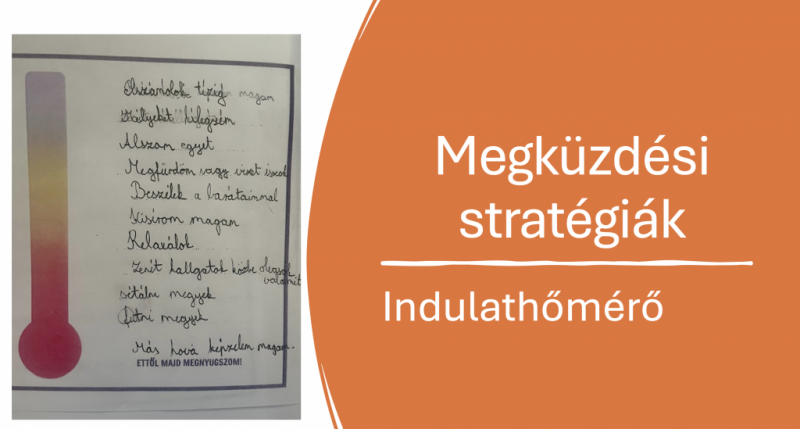 Elszámolok tízig magam
Mélyeket lélegzem
Alszom egyet
Megfürdöm vagy vizet iszok
Beszélek a barátaimmal
Kisírom magam
Relaxálok
Zenét hallgatok közbe olvasok
valamit
sétálni megyek
Futni megyek
Más hová képzelem magam.
ETTŐL MAJD MEGNYUGSZOM!
Megküzdési
stratégiák
Indulathőmérő